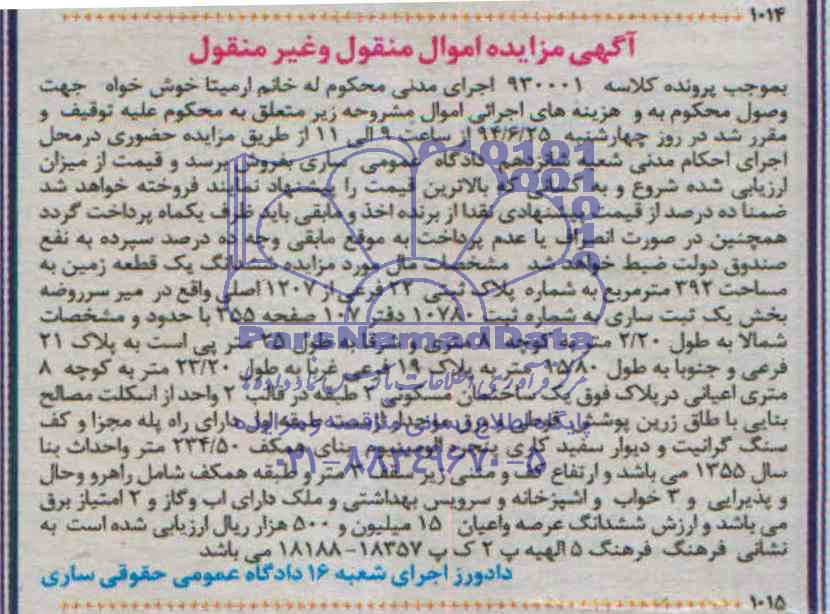 ۱۰۱۴
آگهی مزایده اموال منقول وغیر منقول
بموجب پرونده کلاسه ۹۳۰۰۰۱ اجرای مدنی محکوم له خانم ارمیتا خوش خواه جهت
وصول محکوم به و هزینه های اجرائی اموال مشروحه زیر متعلق به محکوم علیه توقیف و
مقرر شد در روز چهارشنبه ۹۴/۶/۲۵ از ساعت ۹ الی ۱۱ از طریق مزایده حضوری درمحل
اجرای احکام مدنی شعبه شانزدهم دادگاه عمومی ساری بفروش برسد و قیمت از میزان
ارزیابی شده شروع و به کسانی که بالاترین قیمت را پیشنهاد نمایند فروخته خواهد شد
ضمنا ده درصد از قیمت پیشنهادی نقدا از برنده اخذ و مابقی باید ظرف یکماه پرداخت گردد
همچنین در صورت انصراف یا عدم پرداخت به موقع مابقی وجه ده درصد سپرده به نفع
صندوق دولت ضبط خواهد شد مشخصات مال مورد مزایده ششدانگ یک قطعه زمین به
مساحت ۳۹۲ مترمربع به شماره پلاک ثبتی ۲۲ فرعی از ۱۲۰۷ اصلی واقع در میر سرروضه
بخش یک ثبت ساری به شماره ثبت ۱۰۷۸۰ دفتر ۱۰۷ صفحه ۳۵۵ با حدود و مشخصات
شمالا به طول ۲/۲۰ متر به کوچه ۸ متری و شرقا به طول ۲۵ متر پی است به پلاک ۲۱
فرعی و جنوبا به طول ۱۵/۸۰ متر به پلاک ۱۹ فرعی غربا به طول ۲۳/۲۰ متر به کوچه ۸
متری اعیانی درپلاک فوق یک ساختمان مسکونی ۲ طبقه در قالب ۲ واحد از اسکلت مصالح
بنایی با طاق زرین پوشش دارای راه پله مجزا و کف
سنگ گرانیت و دیوار سفید کاری پنجره الومینیوم بنای همکف ۲۳۴/۵۰ متر واحداث بنا
سال ۱۳۵۵ می باشد و ارتفاع کف و مشی زیر سقف ۳ متر و طبقه همکف شامل راهرو وحال
و پذیرایی و ۳ خواب و اشپزخانه و سرویس بهداشتی و ملک دارای اب وگاز و ۲ امتیاز برق
می باشد و ارزش ششدانگ عرصه واعیان ۱۵ میلیون و ۵۰۰ هزار ریال ارزیابی شده است به
نشانی فرهنگ فرهنگ ۵ الهیه پ ۲ ک پ ۱۸۳۵۷-۱۸۱۸۸ می باشد
دادورز اجرای شعبه ۱۶ دادگاه عمومی حقوقی ساری
۱۰۱۵
ParsNamadData
مرکز فرآوری اطلاعات پارس نماد داده ها
پایگاه اطلاع رسانی مناقصه و مزایده
۰۲۱-۸۸۳۴۹۶۷۰-۵